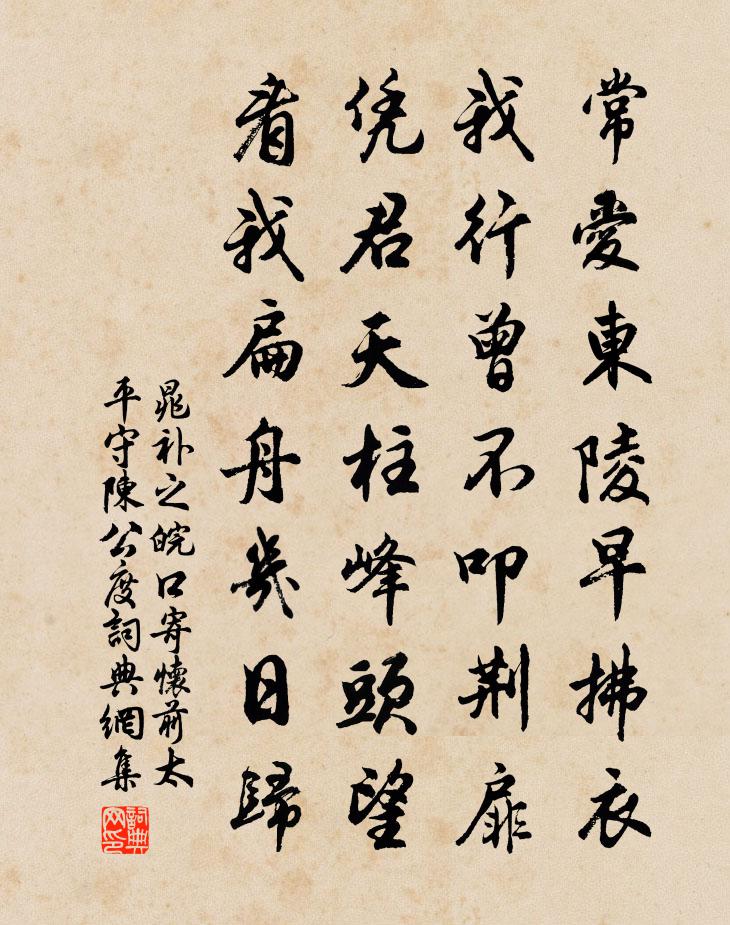 常愛東陵早拂衣
我行曾不叩荆扉
凭君天柱峰頭望
看我扁舟幾日歸
晁补之皖口寄懷前太
平守陳公度詞典網集
詞典
网印